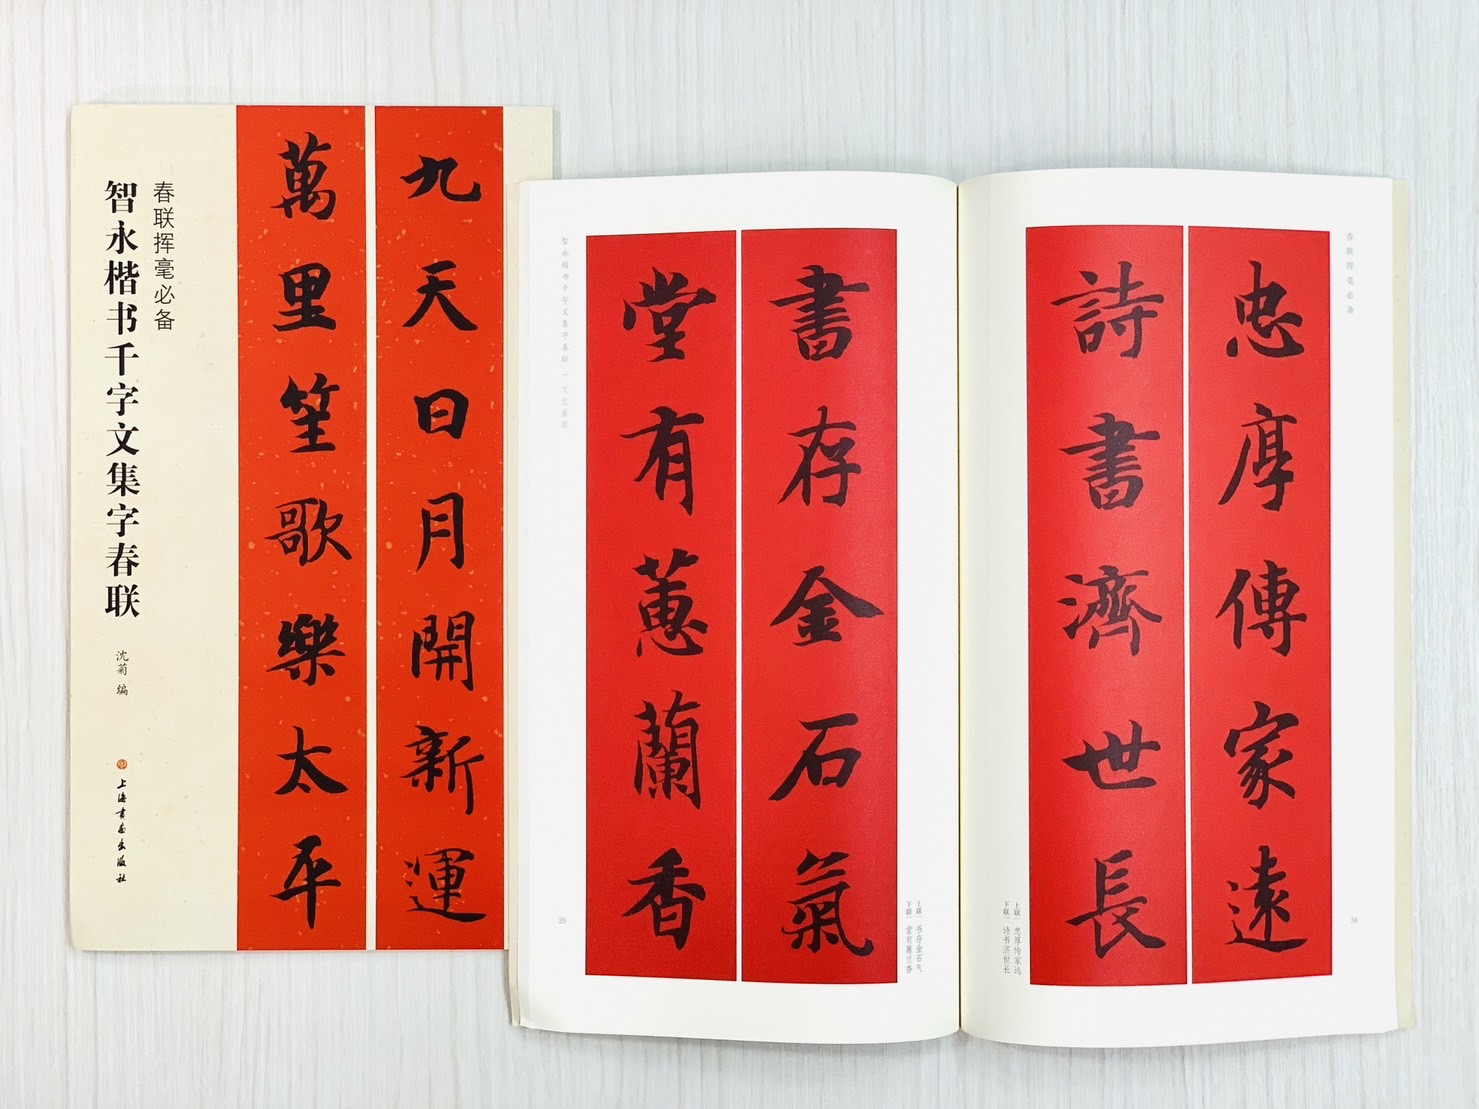 九天日月開新運
萬里笙歌樂太平
春联挥毫必备
智永楷书千字文集字春联
沈菊 编
上海書畫出版社
春联挥毫必备
忠厚傳家遠
詩書濟世長
上联｜忠厚传家远
下联｜诗书济世长
34
書存金石氣
堂有蕙蘭香
上联｜书存金石气
下联｜堂有蕙兰香
智永楷书千字文集字春联｜
35